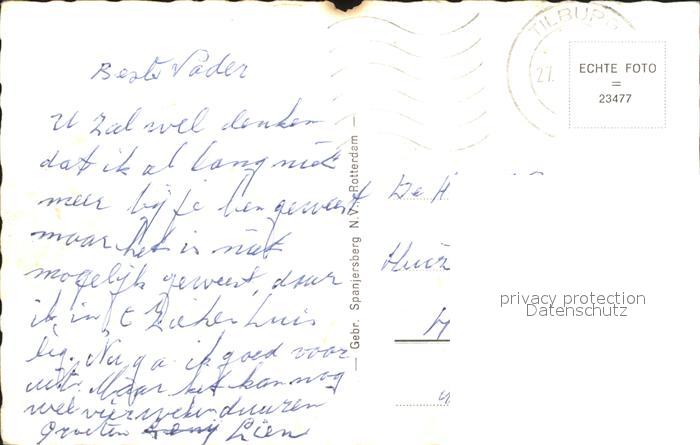 Beste Vader
U zal wel denken
dat ik al lang niet
meer bij je ben geweest
maar het is niet
mogelijk geweest, daar
ik in 't Ziekenhuis
lig. Nu ga ik goed voor
uit. Maar het kan nog
wel vier weken duuren
Groeten Lien
— Gebr. Spanjersberg N.V., Rotterdam —
TILBURG
27
ECHTE FOTO
=
23477
De H
privacy protection
Datenschutz